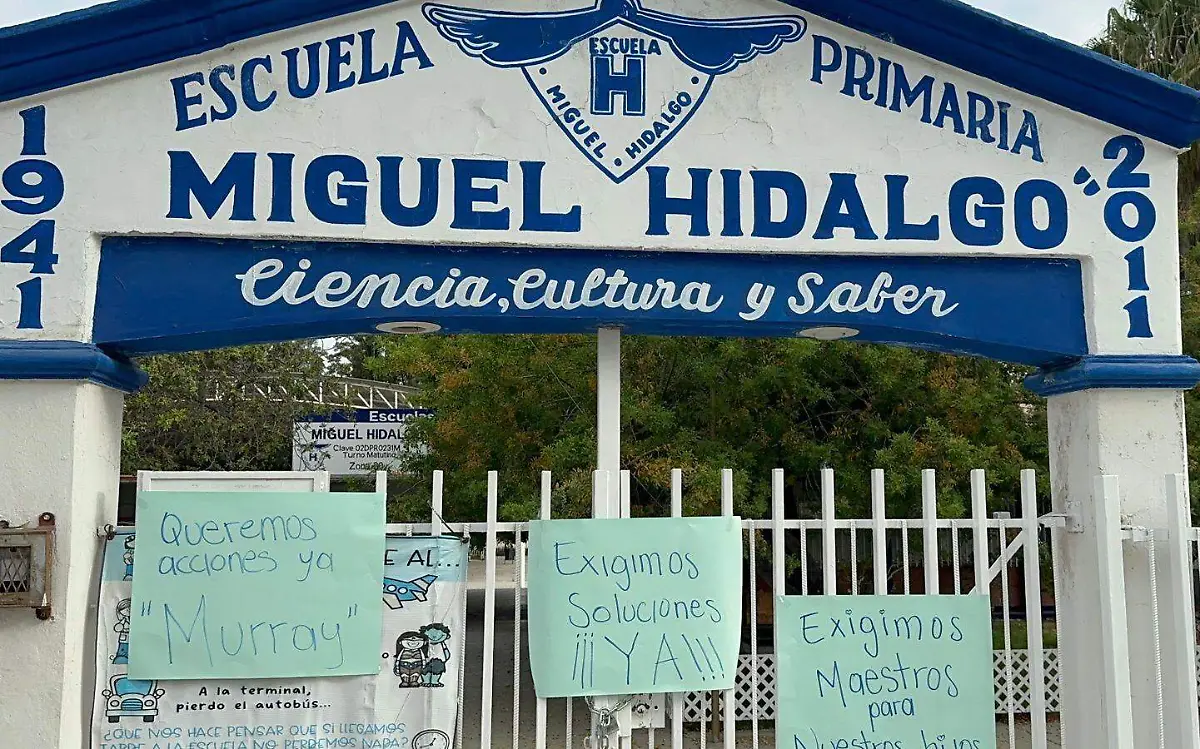 ESCUELA
PRIMARIA
ESCUELA
H
MIGUEL · HIDALGO
MIGUEL HIDALGO"
1941
2011
Ciencia, Cultura y Saber
Escuelas
MIGUEL HIDAL
Clave 02DPR0231M
Turno Matutino
Zona
Queremos
acciones ya
"Murray"
E AL...
Exigimos
Soluciones
¡¡¡YA!!!
Exigimos
Maestros
para
Nuestros hijos
A la terminal,
pierdo el autobús...
¿QUE NOS HACE PENSAR QUE SI LLEGAMOS
TARDE A LA ESCUELA NO PERDEMOS NADA?